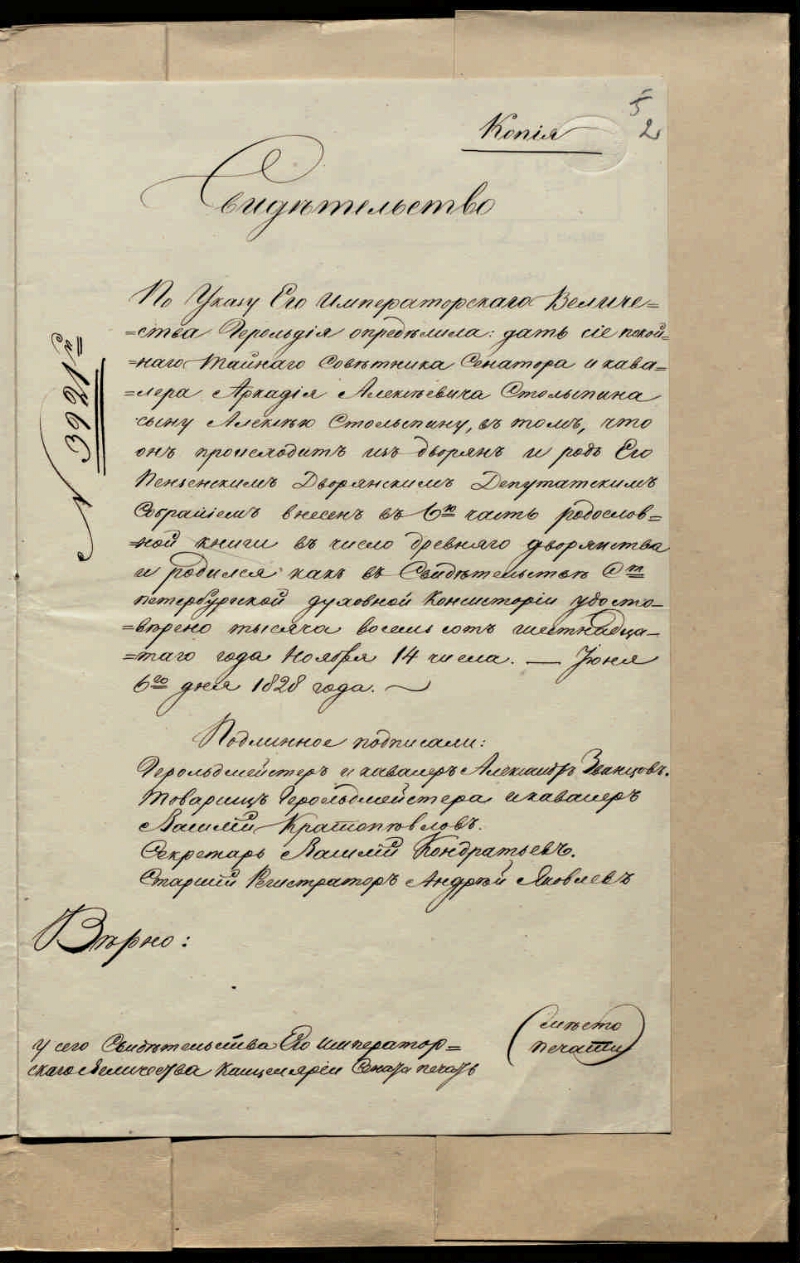 5
2
Копія
Свидѣтельство
N 3921й
По Указу Его Императорскаго Величе=
=ства Герольдія опредѣлила: дать сіе покой=
=наго Тайнаго Совѣтника Сенатора и кава=
=лера Аркадія Алексѣевича Столыпина
сыну Алексѣю Столыпину, въ томъ, что
онъ происходитъ изъ дворян и родъ Его
Пензенскимъ Дворянскимъ Депутатскимъ
Собраніемъ внесен въ 6ю часть родослов=
=ной книги въ число древняго дворянства
и родился какъ въ Свидѣтельствѣ Ст
петербургской духовной Консисторіи удосто=
=вѣрено тысяча восемь сотъ шестнадца=
=таго года Ноября 14 числа. — Іюня
6го дня 1828 года.
Подлинное подписали:
Герольдмейстеръ и кавалеръ Александръ Званцовъ.
Товарищъ Герольдмейстера и кавалеръ
Василій Кратопѣвловъ.
Секретарь Василій Кондратьевъ.
Старшій Регистраторъ Андрѣй Яковлевъ
Вѣрно:
У сего Свидѣтельства Его Император=
скаго Величества Канцеляріи Сената печать
(мѣсто
печати)